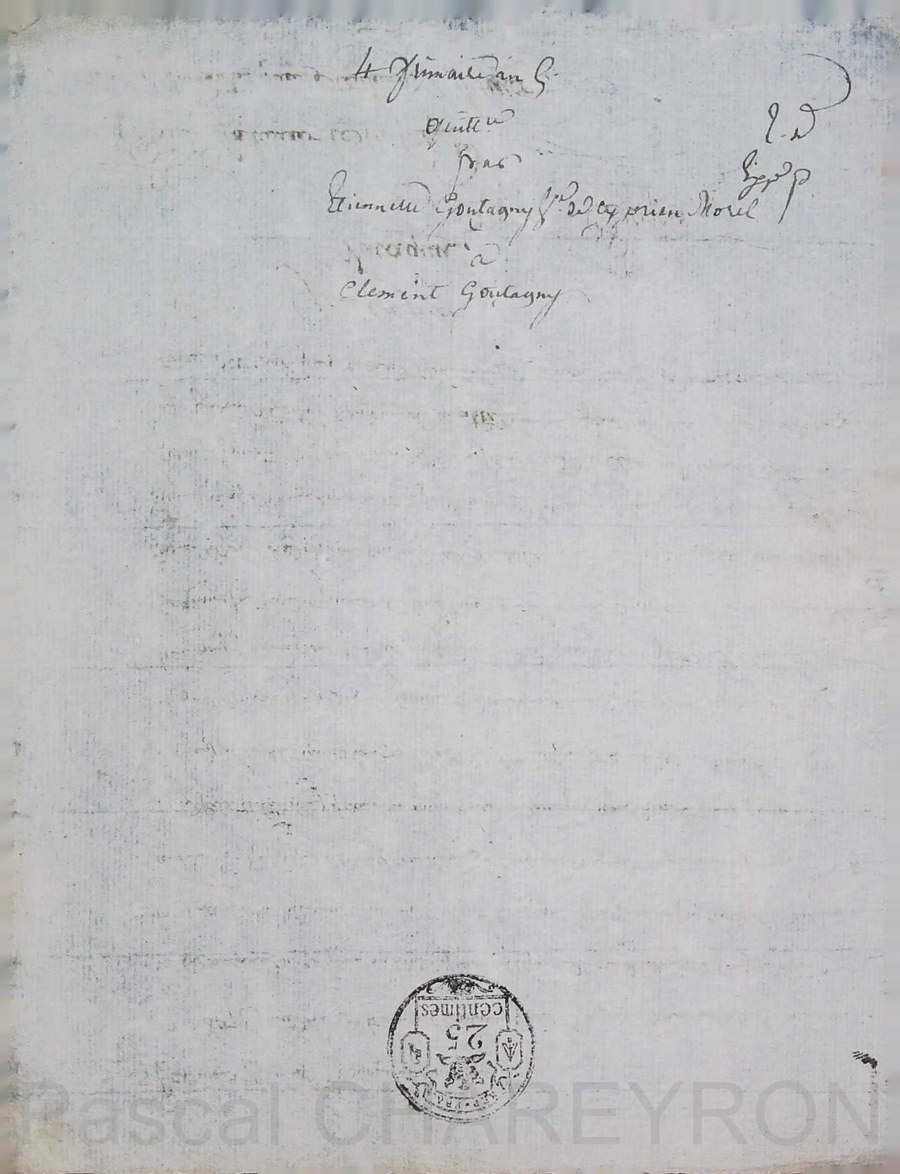 4 frimaire an 5
quitt.ce
par
Etiennette Goutagny v.e de Cyprien Morel
à
Clement Goutagny
25
centimes
Pascal CHAREYRON